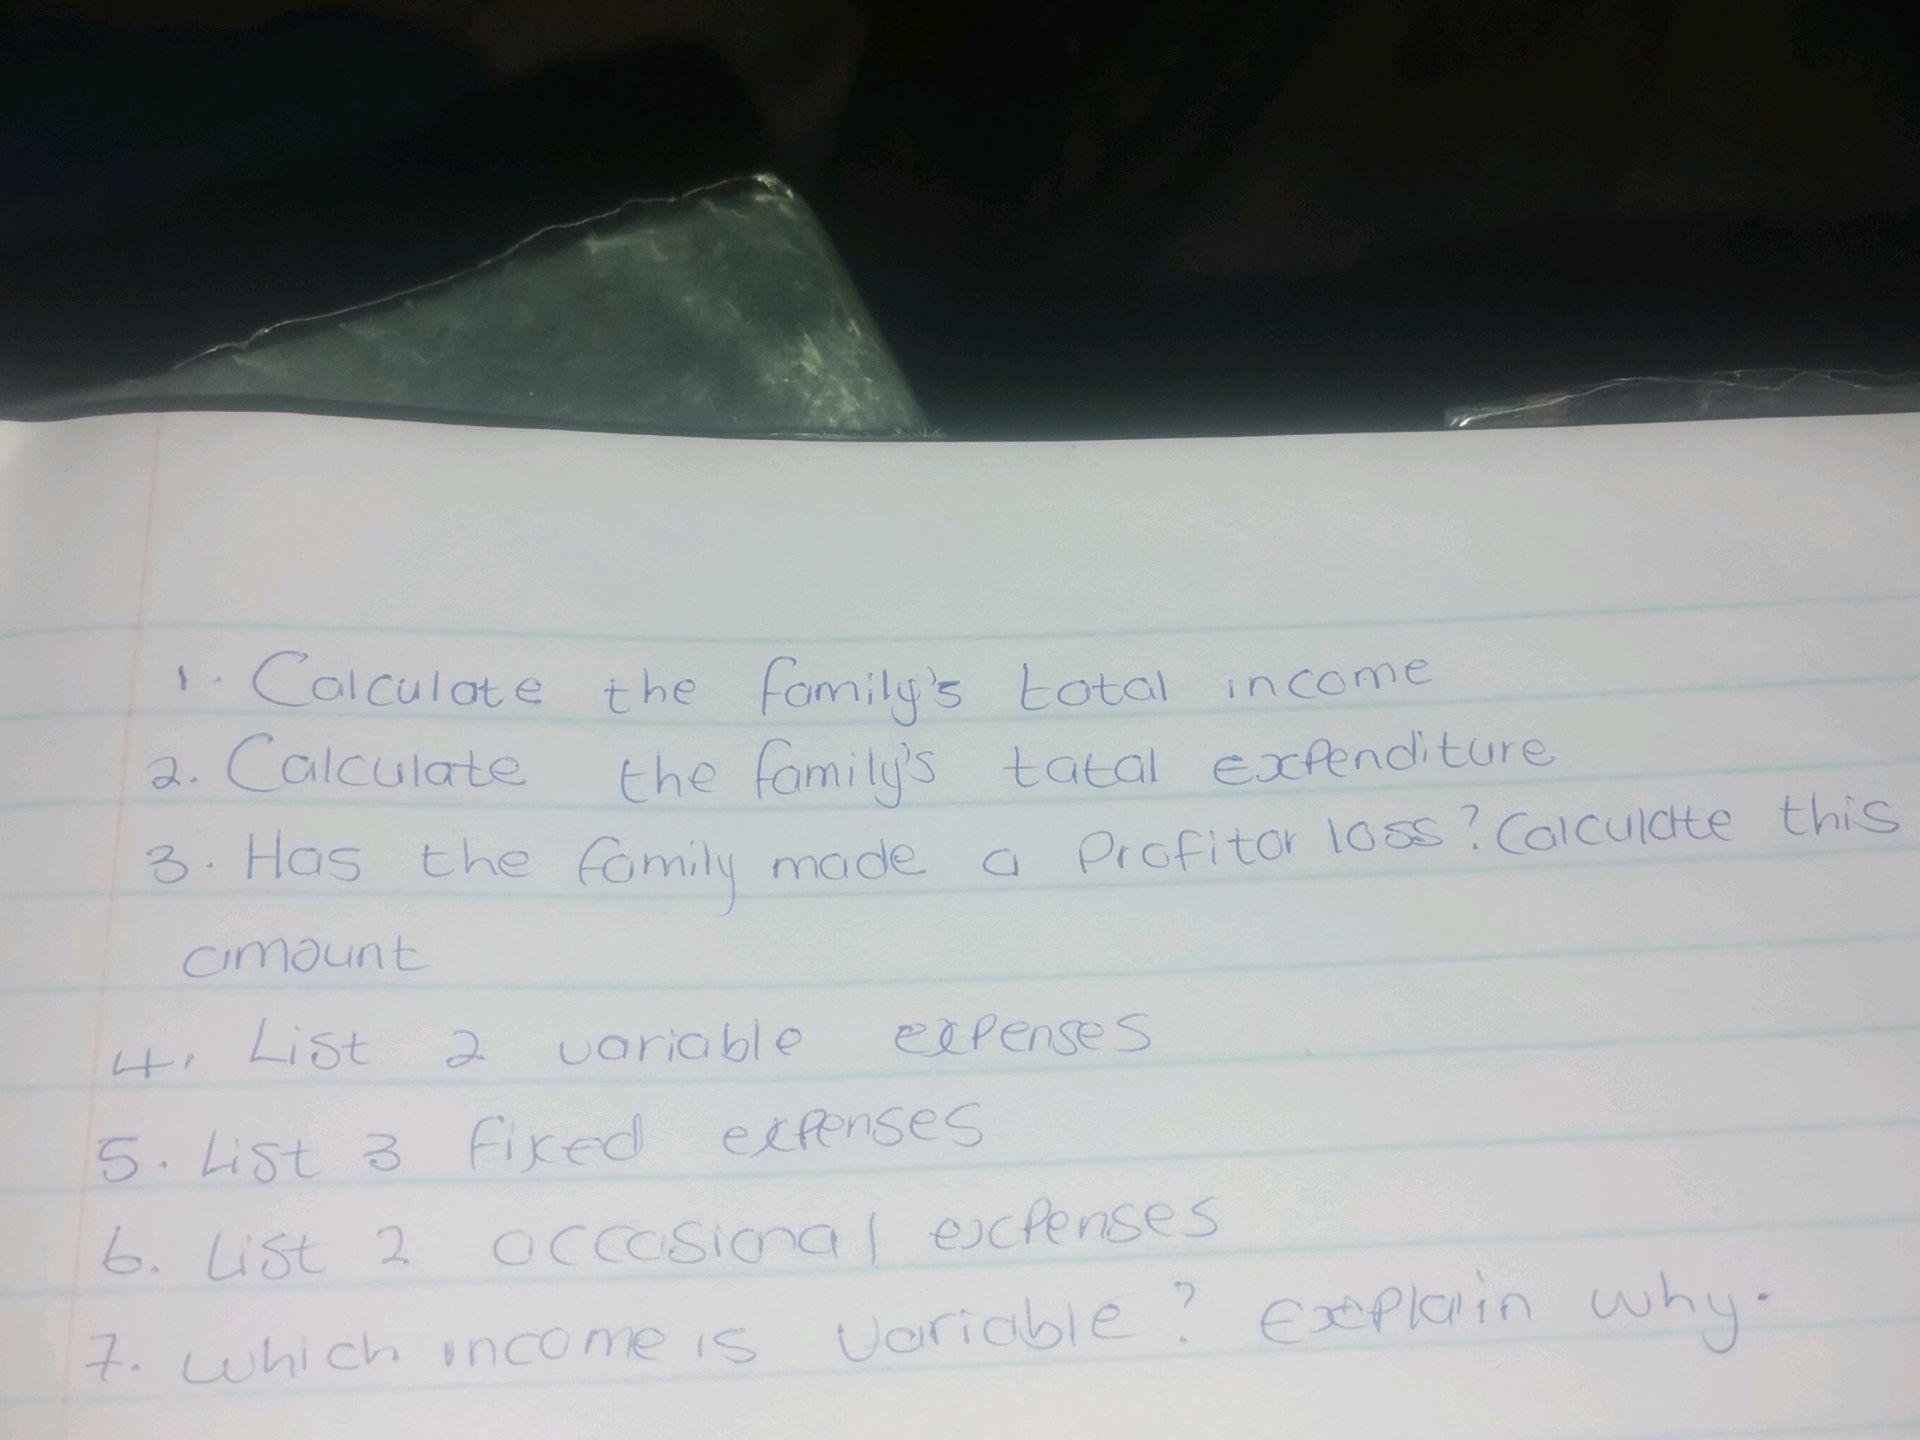 1. Calculate the family's total income
2. Calculate the family's tatal expenditure
3. Has the family made a Profit or loss? Calculate this
amount
4. List 2 variable expenses
5. List 3 fixed expenses
6. List 2 occasional expenses
7. which income is variable? Explain why.